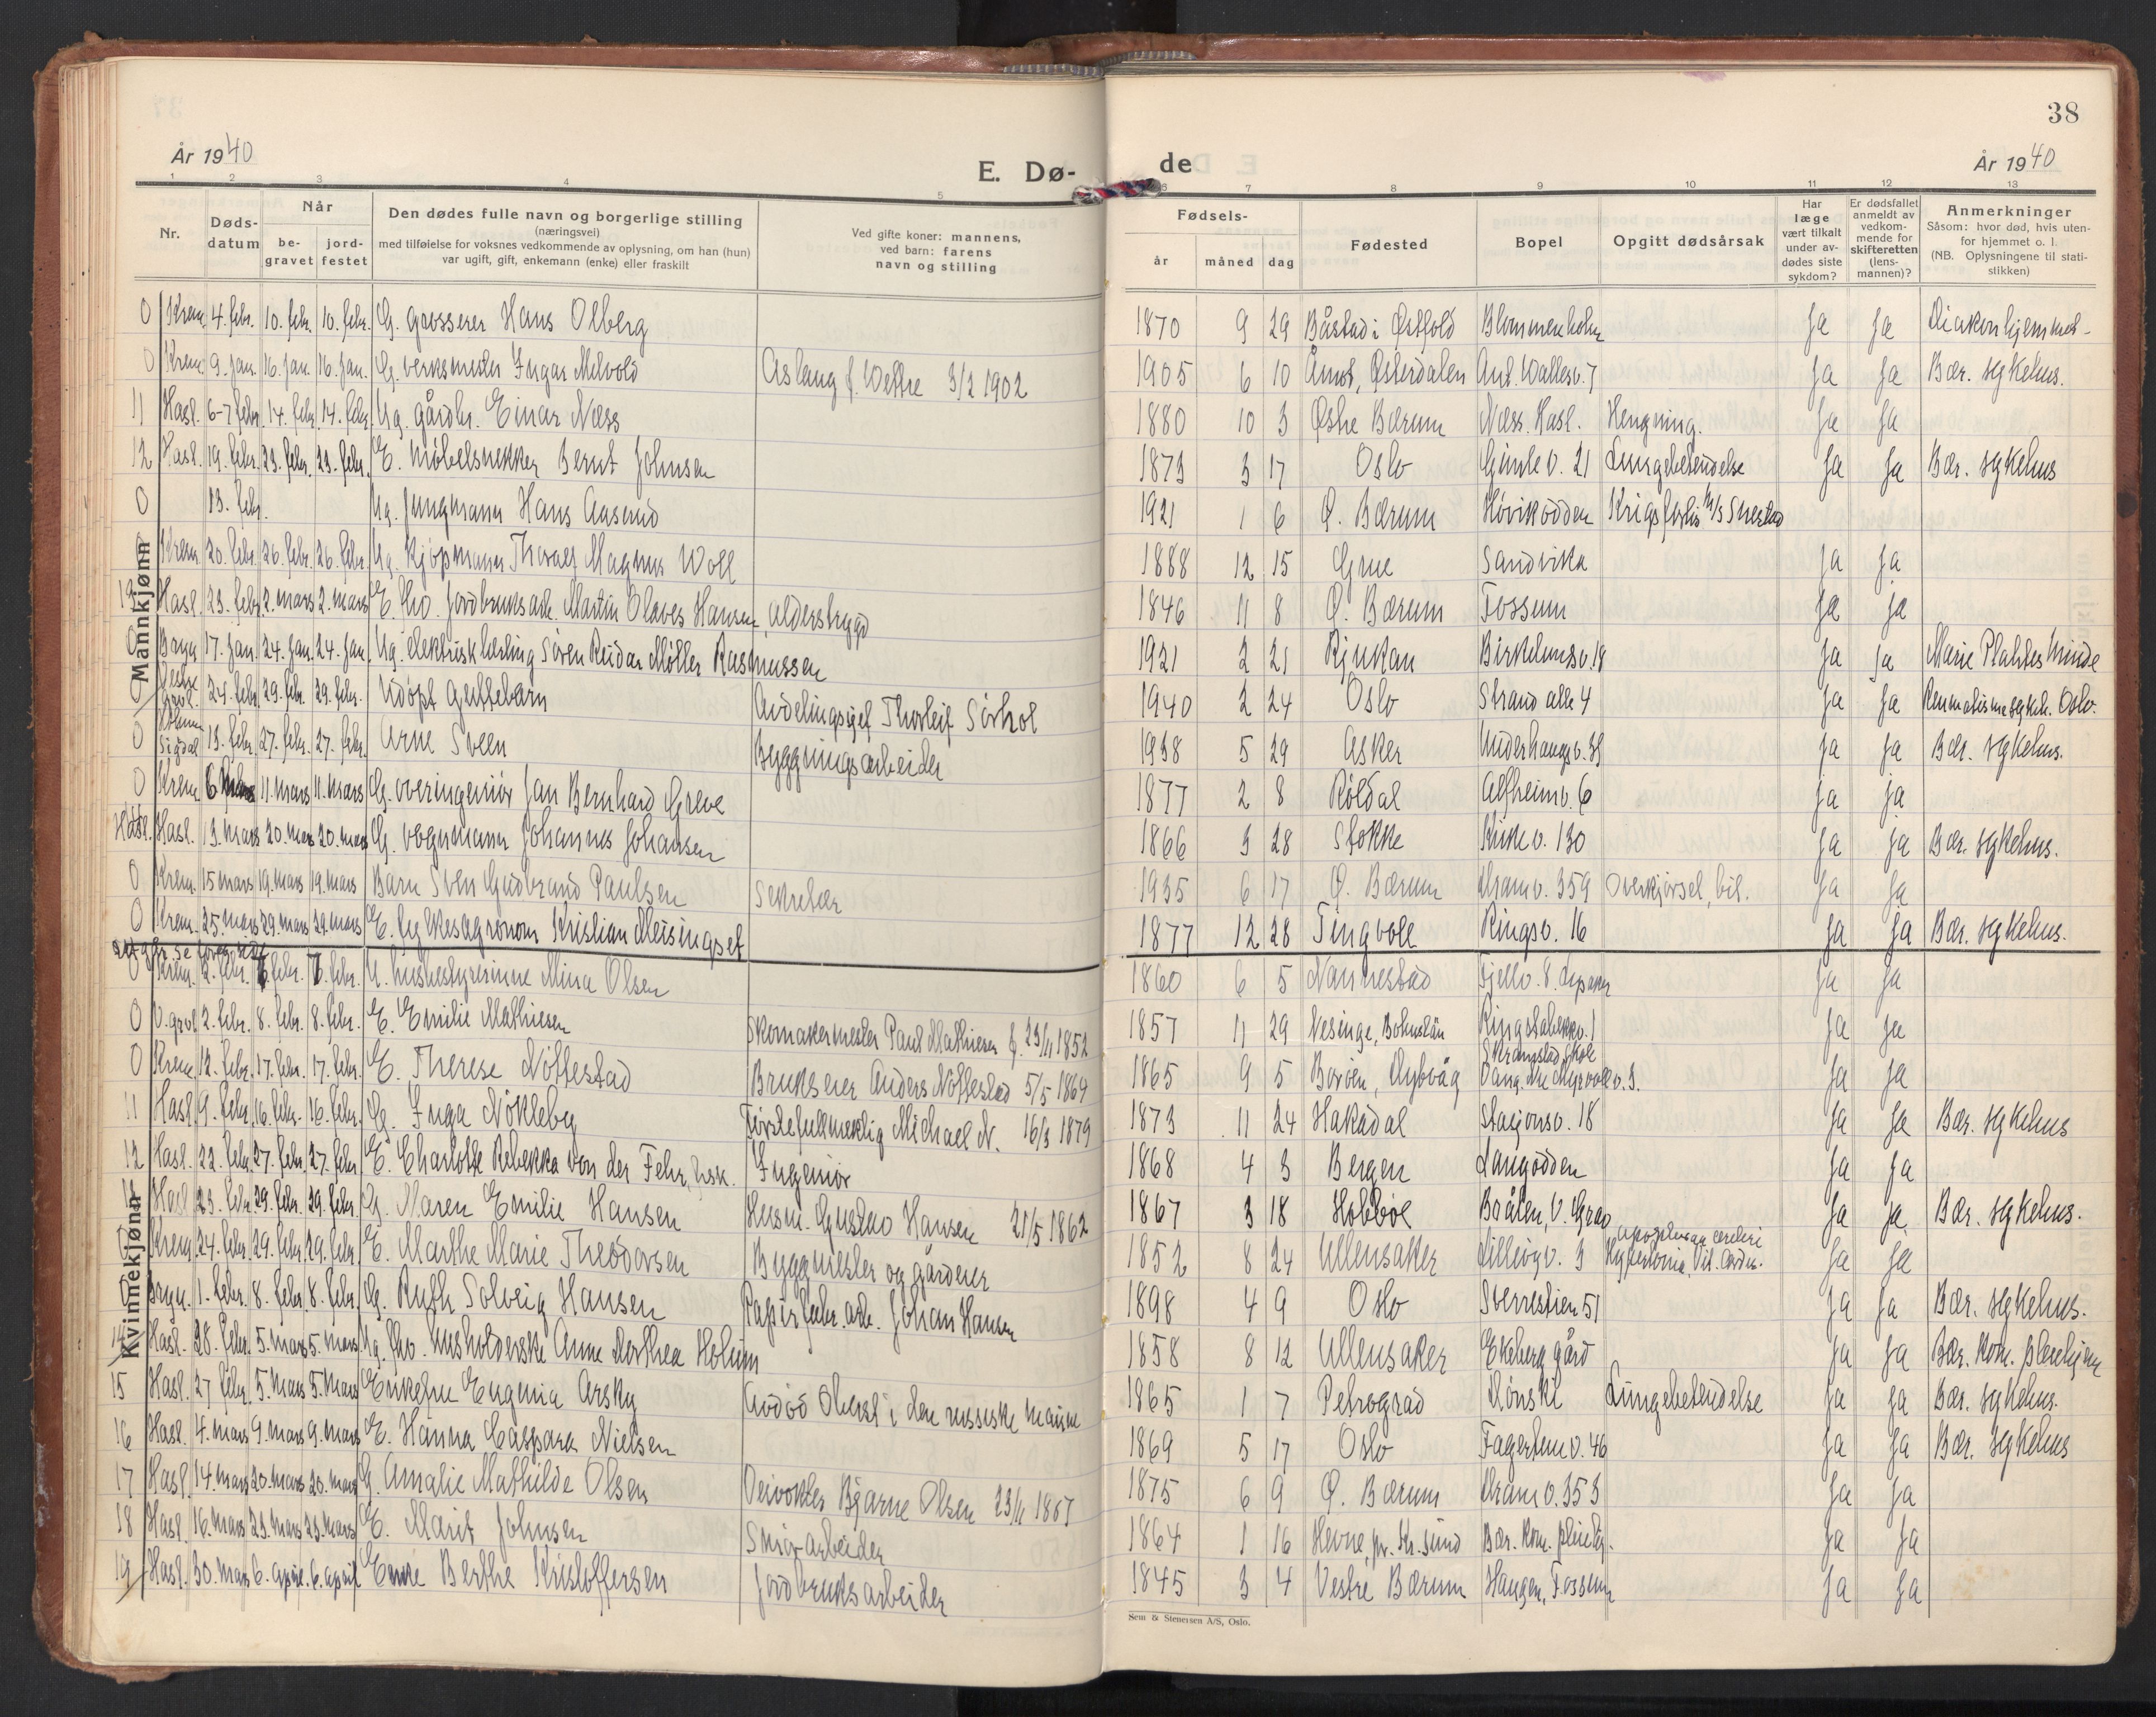 38
År 1940
E. Dø-
de
År 1940
1 2 3 4 5 6 7 8 9 10 11 12 13
Nr.
Døds-
datum
Når
be-
gravet
jord-
festet
Den dødes fulle navn og borgerlige stilling
(næringsvei)
med tilføielse for voksnes vedkommende av oplysning, om han (hun)
var ugift, gift, enkemann (enke) eller fraskilt
Ved gifte koner: mannens,
ved barn: farens
navn og stilling
Fødsels-
år
måned
dag
Fødested
Bopel
Opgitt dødsårsak
Har
læge
vært tilkalt
under av-
dødes siste
sykdom?
Er dødsfallet
anmeldt av
vedkom-
mende for
skifteretten
(lens-
mannen)?
Anmerkninger
Såsom: hvor død, hvis uten-
for hjemmet o. l.
(NB. Oplysningene til stati-
stikken)
Mannkjønn
0 Krem. 4. febr. 10. febr. 10. febr. G. grosserer Hans Olberg 1870 9 29 Båstad i Østfold Blommenholm Ja Ja Diakonhjemmet
0 Krem. 9. jan. 16. jan. 16. jan. G. verksmester Ingar Melvold Aslaug f. Wettre 3/2 1902 1905 6 10 Åmot, Østerdalen Ant. Wallesv. 7 Ja Ja Bær. sykehus.
11 Hasl. 6-7 febr. 14. febr. 14. febr. Ug. gårdbr. Einar Næss 1880 10 3 Østre Bærum Næss. Hasl. Hengning. Ja Ja
12 Hasl. 19. febr. 23. febr. 23. febr. E. møbelsnekker Bernt Johnsen 1873 3 17 Oslo Gimle v. 21 Lungebetendelse Ja Ja Bær. sykehus
0 13. febr. Ug. jungmann Hans Aaserud 1921 1 6 Ø. Bærum Høvikodden Krigsforlis M/S Snestad
Krem. 20. febr. 26. febr. 26. febr. Ug. kjøpmann Thoralf Magnus Woll 1888 12 15 Grue Sandvika Ja Ja
13 Hasl. 23. febr. 2. mars 2. mars E. fhv. jordbruksarb. Martin Olaves Hansen, alderstrygd 1846 11 8 Ø. Bærum Fossum Ja Ja
0 Bryn 17. jan. 24. jan. 24. jan. Ug. elektrisk lærling Søren Reidar Møller Rasmussen 1921 2 21 Rjukan Birkelundv. 18 Ja Ja Marie Plahtes Minde
0 Vestre grav. 24. febr. 29. febr. 29. febr. Udøpt guttebarn Avdelingssjef Thorleif Sørhol 1940 2 24 Oslo Strand alle 4 Ja Ja Reumatismesykeh. Oslo.
0 Sigdal 13. febr. 27. febr. 27. febr. Arne Sveen Byggningsarbeider 1938 5 29 Asker Underhaugsv. 38 Ja Ja Bær. sykehus.
0 Krem. 6 mars 11. mars 11. mars G. overingeniør Jan Bernhard Greve 1877 2 8 Røldal Alfheimv. 6 Ja Ja
Hasl. Hasl. 13. mars 20. mars 20. mars G. vognmann Johannes Johansen 1866 3 28 Stokke Kirkev. 130 Ja Ja Bær. sykehus.
0 Krem. 15 mars 19. mars 19. mars Barn Sven Gudbrand Paulsen Sekretær 1935 6 17 Ø. Bærum Dramv. 359 Overkjørsel, bil. Ja Ja
0 Krem. 25. mars 29. mars 29. mars E. fylkesagronom Kristian Meisingset 1877 12 28 Tingvoll Ringsv. 16 Ja Ja Bær. sykehus.
Kvinnekjønn
0 Krem. 2. febr. 7. febr. 7. febr. U. husbestyrerinne Mina Olsen 1860 6 5 Nannestad Fjellv. 8. Lysaker Ja Ja
0 V. grav. 2. febr. 8. febr. 8. febr. E. Emilie Mathiesen Skomakermester Paul Mathiesen f. 23/11 1852 1857 11 29 Nesinge, Bohuslän Ringstabekkv. 1 Ja Ja
0 Krem. 12. febr. 17. febr. 17. febr. E. Therese Nøttestad Brukseier Anders Nøttestad 5/5 1869 1865 9 5 Borøen, Dybvåg Ja Ja
11 Hasl. 9. febr. 16. febr. 16. febr. G. Inga Nøkleby Førstefullmektig Michael N. 16/3 1879 1873 11 24 Hakadal Stasjonsv. 18 Ja Ja Bær. sykehus
12 Hasl. 22. febr. 27. febr. 27. febr. E. Charlotte Rebekka von der Fehr, Ingeniør 1868 4 3 Bergen Langodden Ja Ja
13 Hasl. 23. febr. 29. febr. 29. febr. G. Maren Emilie Hansen Husm. Gustav Hansen 21/5 1862 1867 3 18 Hobøl Bråten, V. Grav Ja Ja Bær. sykehus.
Krem. 24. febr. 29. febr. 29. febr. E. Marthe Marie Theodorsen Byggmester og gårdeier 1852 8 24 Ullensaker Lillevgv. 3 Hypertonia, Vit. Cordis. Ja Ja
0 Bryn. 1. febr. 8. febr. 8. febr. G. Ruth Solveig Hansen Papirfabr. arb. Johan Hansen 1898 4 9 Oslo Sverrestien 51 Ja Ja Bær. sykehus.
14 Hasl. 28. febr. 5. mars 5. mars Ug. fhv. husholderske Anne Dorthea Holum 1858 8 12 Ullensaker Ekeberg gård Ja Ja Bær. kom. pleiehjem
15 Hasl. 27 febr. 5. mars 5. mars Enkefru Eugenia Arsky Avdød Oberst i den russiske marine 1865 1 7 Petrograd Rønski Lungebetendelse Ja Ja Bær. sykehus.
16 Hasl. 4. mars 9. mars 9. mars E. Hanna Caspara Nielsen 1869 5 17 Oslo Fagerhemv. 46 Ja Ja Bær. sykehus
17 Hasl. 14. mars 20. mars 20. mars G. Amalie Mathilde Olsen Veivokter Bjarne Olsen 23/11 1867 1875 6 9 Ø. Bærum Dramv. 353 Ja Ja
18 Hasl. 16. mars 23. mars 23. mars E. Marit Johnsen Snørarbeider 1864 1 16 Hevne, pr. Kr. sund Bær. kom. pleiehj. Ja Ja
19 Hasl. 30. mars 6. april. 6. april Enke Berthe Kristoffersen Jordbruksarbeider 1845 3 4 Vestre Bærum Haugen, Fossum Ja Ja
Sem & Stenersen A/S, Oslo.